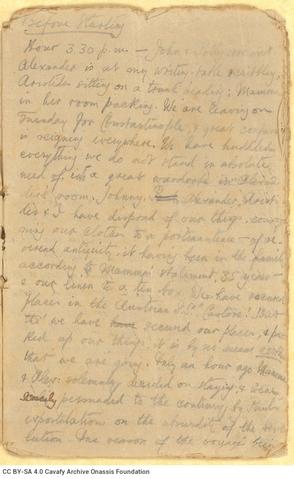 Before Starting
Hour 3.30 p.m. — John & Toby are out
Alexander is at my writing-table scribbling,
Aristides sitting on a trunk reading; Mammy
in her room packing. We are leaving on
Tuesday for Constantinople, & great confusion
is reigning everywhere. We have huddled
everything we do not stand in absolute
need of in a great wardrobe in
room. Johnny, Alexander, Aristi-
des & I have dispond of our things, consig-
ning our clothes to a portmanteau — of re-
verend antiquity, it having been in the family
according to Mammy's statement, 35 years —
& our linen to a tin box. We have secured
places in the Austrian Str "Castore". But
tho' we have secured our places, & pac-
ked up our things, it is by no means certain
that we are going. Only an hour ago Mammy
& Alex: solemnly decided on staying & being
persuaded to the contrary by Paul's
expostulation on the absurdity of the reso-
lution. The reason of the voyage being
CC BY-SA 4.0 Cavafy Archive Onassis Foundation